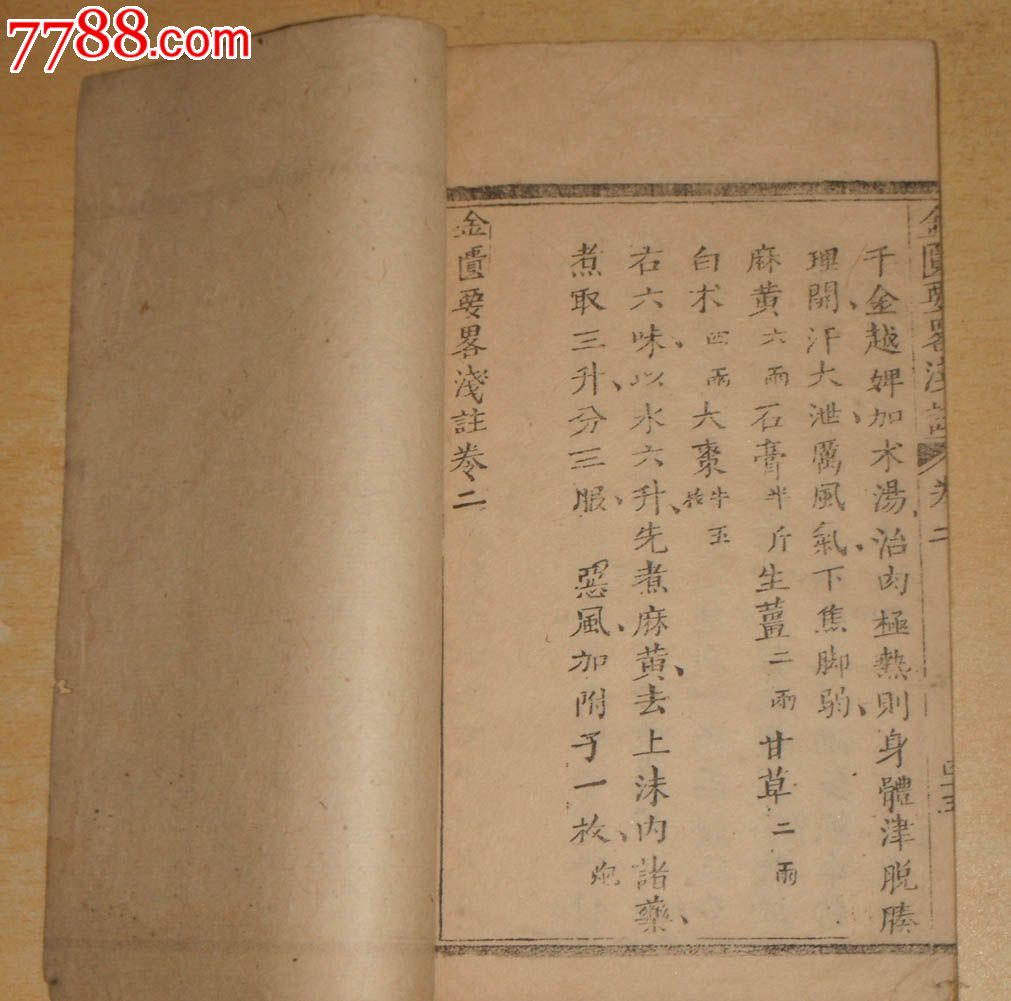 7788.com
金匱要畧淺註 卷二
千金越婢加术湯治肉極熱則身體津脫腠
理開汗大泄厲風氣下焦脚弱
麻黃六兩石膏半斤生薑二兩甘草二兩
白术四兩大棗十五枚
右六味以水六升先煮麻黃去上沫内諸藥
煮取三升分三服 惡風加附子一枚炮
金匱要畧淺註卷二